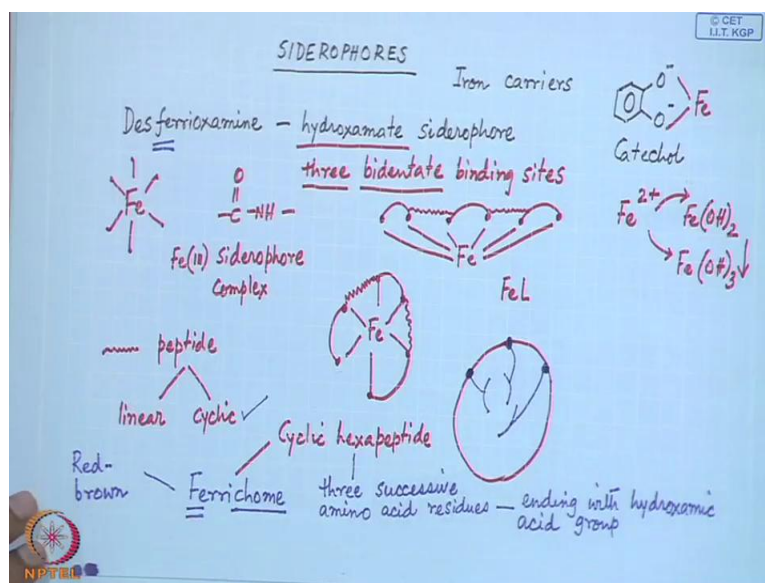 © CET
I.I.T. KGP
SIDEROPHORES
Iron carriers
Desferrioxamine – hydroxamate siderophore
three bidentate binding sites
O⁻
O⁻
Fe
Catechol
Fe
O
‖
–C–NH–
Fe(III) Siderophore
Complex
Fe
FeL
Fe²⁺
Fe(OH)₂
Fe(OH)₃↓
Fe
peptide
linear
Cyclic ✓
Cyclic hexapeptide
Red-
brown
Ferrichome
three successive
amino acid residues – ending with hydroxamic
acid group
NPTEL